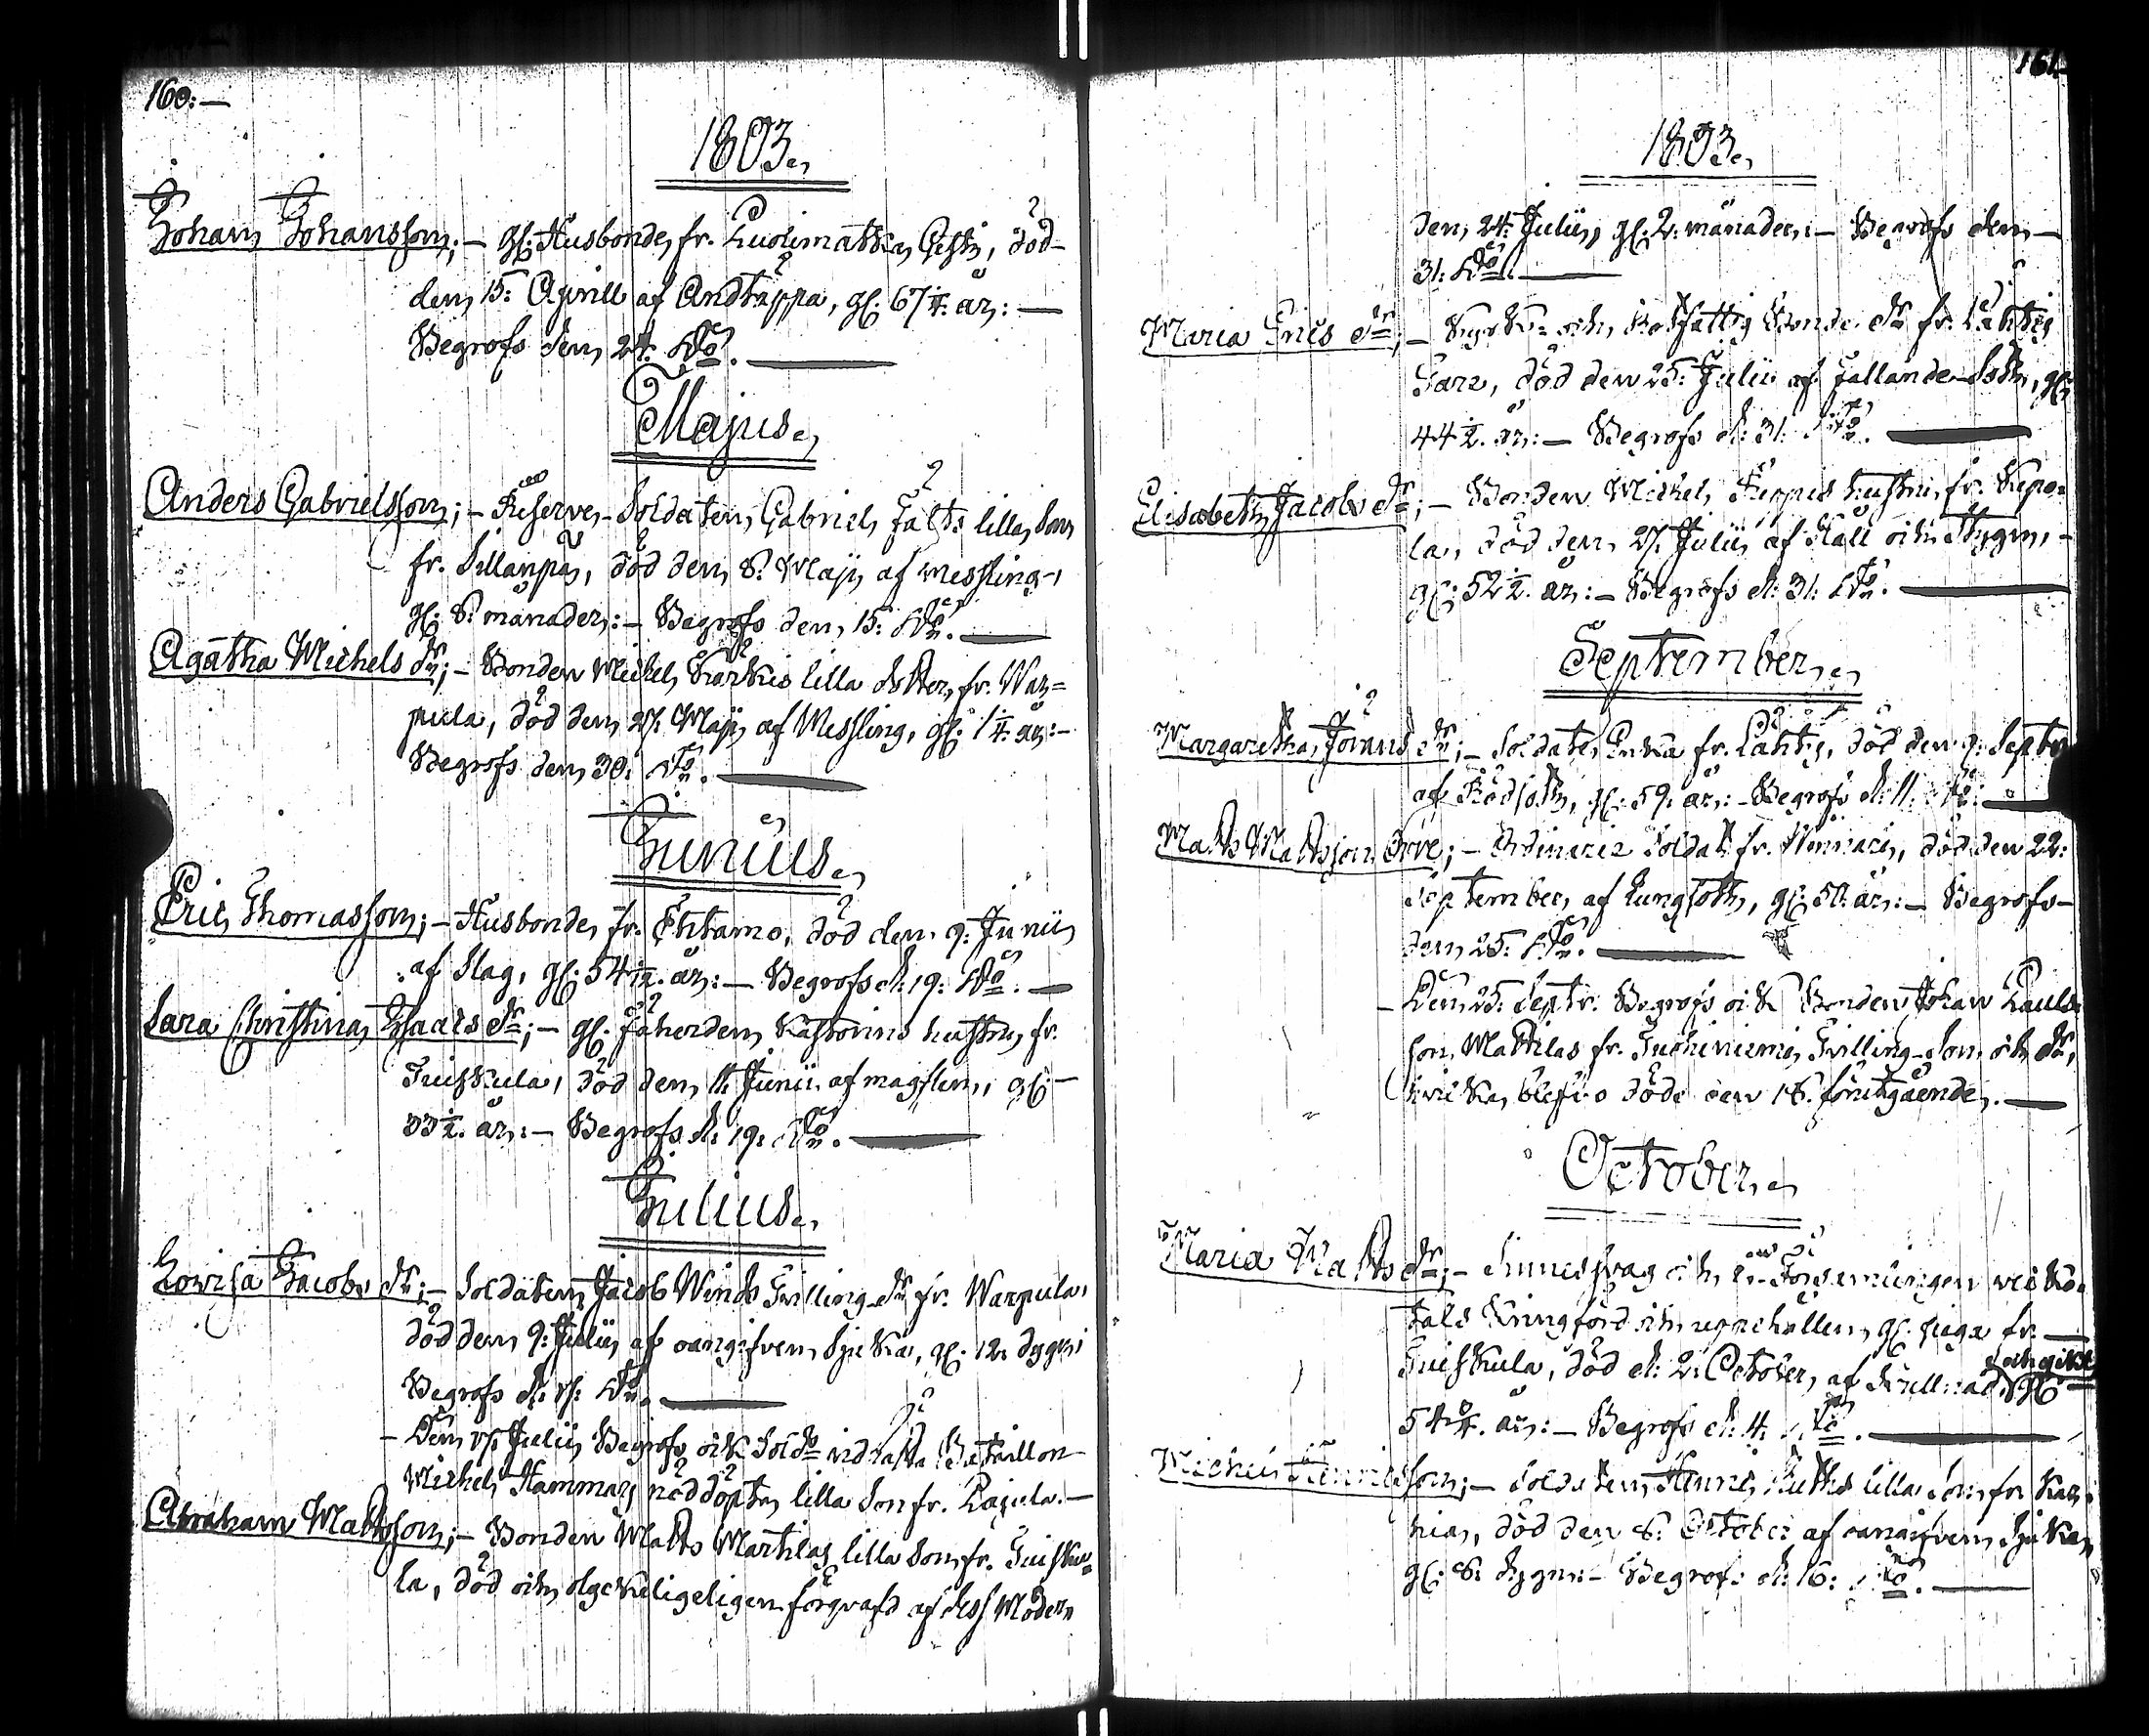 160:—
1803.
Johan Johansson; — gl: Husbonde, fr. Giesti, död
den 15: Aprill af Andtäppa, gl: 67 1/4. år: —
Begrofs den 24: Do.
Majus.
Anders Gabrielsson; — Reserve-Soldaten, Gabriel Fälts lilla Son
fr. Sillanpä, död den 8: Maji, af messling,
gl: 8: månader: — Begrofs den 15: Do.
Agatha Michels dr; — Bonden Michel Karkis lilla dotter, fr. War=
pula, död den 27. Maji, af Messling, gl: 1 1/4. år: —
Begrofs den 30: Do.
Junius.
Eric Thomasson; — Husbonde, fr. Ehtamo, död den 9: Junii
af slag, gl: 54 1/2. år: — Begrofs d: 19: Do. —
Sara Christina Isaacs dr; — gl. hustru, fr.
Tuiskula, död den 11: Junii af magplem, gl: —
33 1/2. år: — Begrofs d: 19: Do.
Julius.
Lovisa Jacobs dr; — Soldaten Jacob Winds Tvilling dr fr. Warpula,
död den 9: Julii, af oangifven sjuka, gl: 12. dygn:
Begrofs d: 17: Do.
— Den 17: Julii, Begrofs ock Soldn vid Bataillon
Michel Hammars nöddöpta lilla son fr. Pajula. —
Abraham Mattsson; — Bonden Matts Marttilas lilla son fr. Tuisku=
la, död och olyckeligeligen förqvafd af dess Moder
161.
1803.
den 24: Julii, gl: 2: månader: — Begrofs den —
31: Do.
Maria Erics dr; — och Bonde dr fr. Lähteen
död den 25: Julii af fallande Sot, gl:
44 1/2. år: — Begrofs d: 31: Do.
Elisabeth Jacobs dr; — Bonden Michel hustru, fr. Repo=
la, död den 27. Julii, af Håll och Stygn, —
gl: 52 1/2. år: — Begrofs d: 31: Do.
September.
Margaretha Johans dr; — Soldats Enka fr. död den 9: Septbr
af Rödsot, gl: 59. år: — Begrofs d: 11: Do. —
Matts Mattsson; — Ordinarie Soldat fr. död den 22:
September, af Lungsot, gl: 50. år: — Begrofs —
den 25: Do.
— Den 25: Septr. Begrofs ock Bonden Johan Pauls=
son, Mattilas fr. Tuohiniemi, Tvilling-Son och dr,
hvilka, blefvo döde den 18. förutgående. —
October.
Maria Matts dr; — Sinnesvag och i Församlingen
kringförd och uppehållen, gl: piga fr. —
Tuiskula, död d: 2: October, af och gikt gl: —
54 3/4. år: — Begrofs d: 4: Do.
Michel Henricsson; — Soldaten Henric lilla Son, fr. Kar=
hia, död den 8: October af oangifven sjuka,
gl: 8: dygn: — Begrofs d: 16: Do.